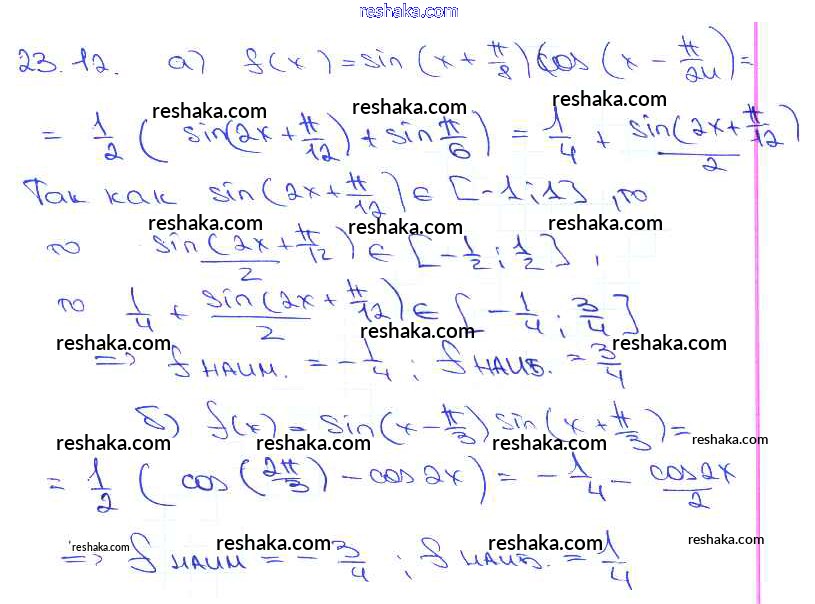 reshaka.com
23.12. а) f(x) = sin(x + π/8) cos(x − π/24) =
reshaka.com reshaka.com reshaka.com
= 1/2 (sin(2x + π/12) + sin π/6) = 1/4 + sin(2x + π/12)/2
Так как sin(2x + π/12) ∈ [-1; 1], то
reshaka.com reshaka.com reshaka.com
то sin(2x + π/12)/2 ∈ [-1/2; 1/2],
то 1/4 + sin(2x + π/12)/2 ∈ [-1/4; 3/4]
reshaka.com reshaka.com reshaka.com
=> f наим. = -1/4; f наиб. = 3/4
б) f(x) = sin(x − π/3) sin(x + π/3) =
reshaka.com reshaka.com reshaka.com reshaka.com
= 1/2 (cos(2π/3) − cos2x) = -1/4 − cos2x/2
reshaka.com reshaka.com reshaka.com reshaka.com
=> f наим = -3/4; f наиб. = 1/4